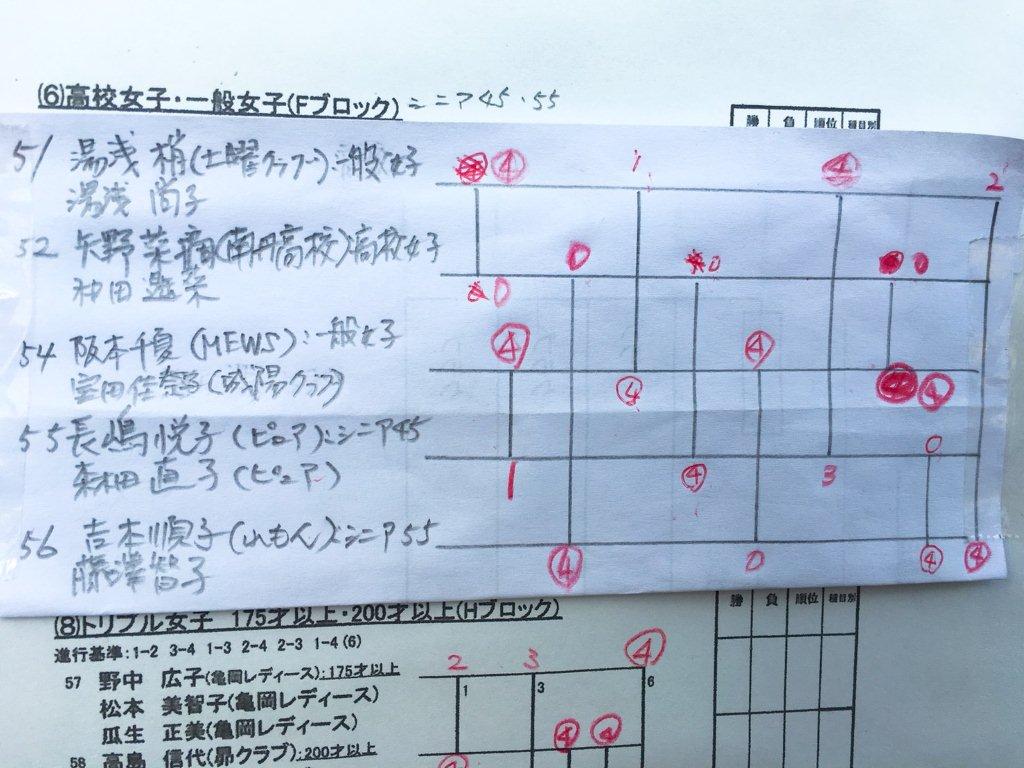 (6)高校女子・一般女子(Fブロック) シニア45・55
勝 負 順位 種目別
51 湯浅 梢(土曜クラブ):一般女子
湯浅 尚子
4 1 4 2
52 矢野 菜 (南丹高校)高校女子
沖田 菜
0 0 0
0
54 阪本千夏(MEWS):一般女子
室田佳奈子(城陽クラブ)
4 4
4 4
55 長嶋悦子(ピュア):シニア45
森田 直子(ピュア)
0
1 4 3
56 吉本順子(いもん):シニア55
藤澤智子
4 0 4 4
(8)トリプル女子 175才以上・200才以上(Hブロック)
勝 負 順位 種目別
進行基準:1-2 3-4 1-3 2-4 2-3 1-4 (6)
2 3 4
57 野中 広子(亀岡レディース):175才以上
1 3 6
松本 美智子(亀岡レディース)
瓜生 正美(亀岡レディース)
4 4
58 高島 信代(昴クラブ):200才以上